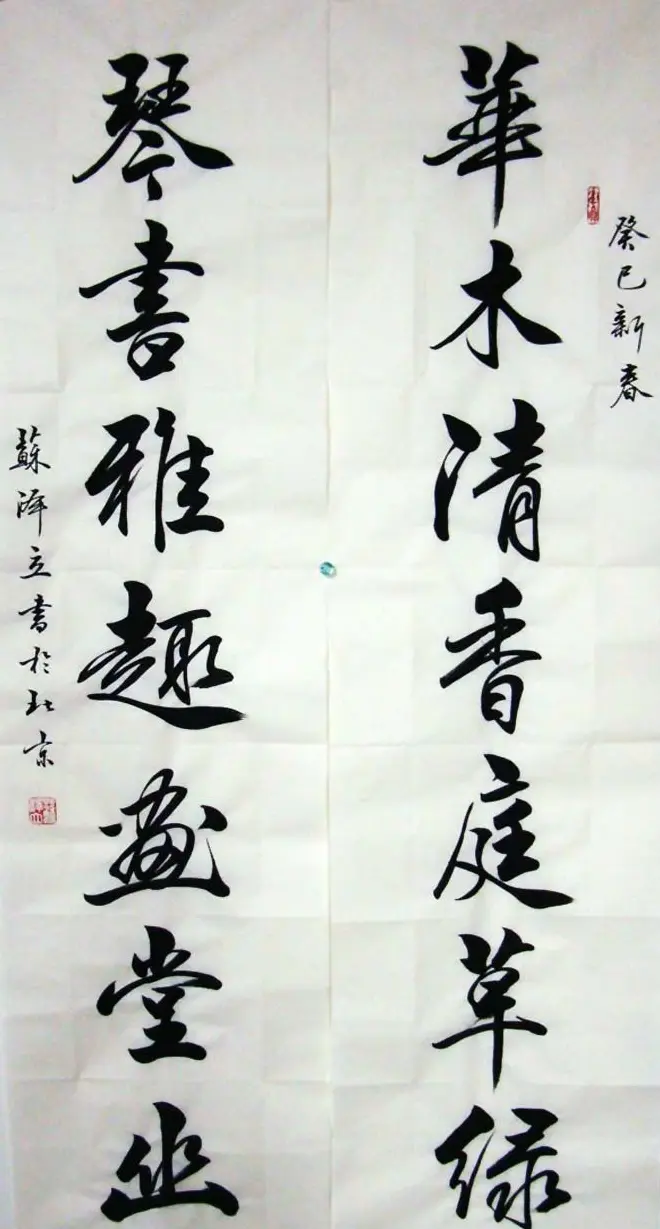 癸巳新春
華木清香庭草绿
琴書雅趣畫堂幽
蘇泽立書於北京